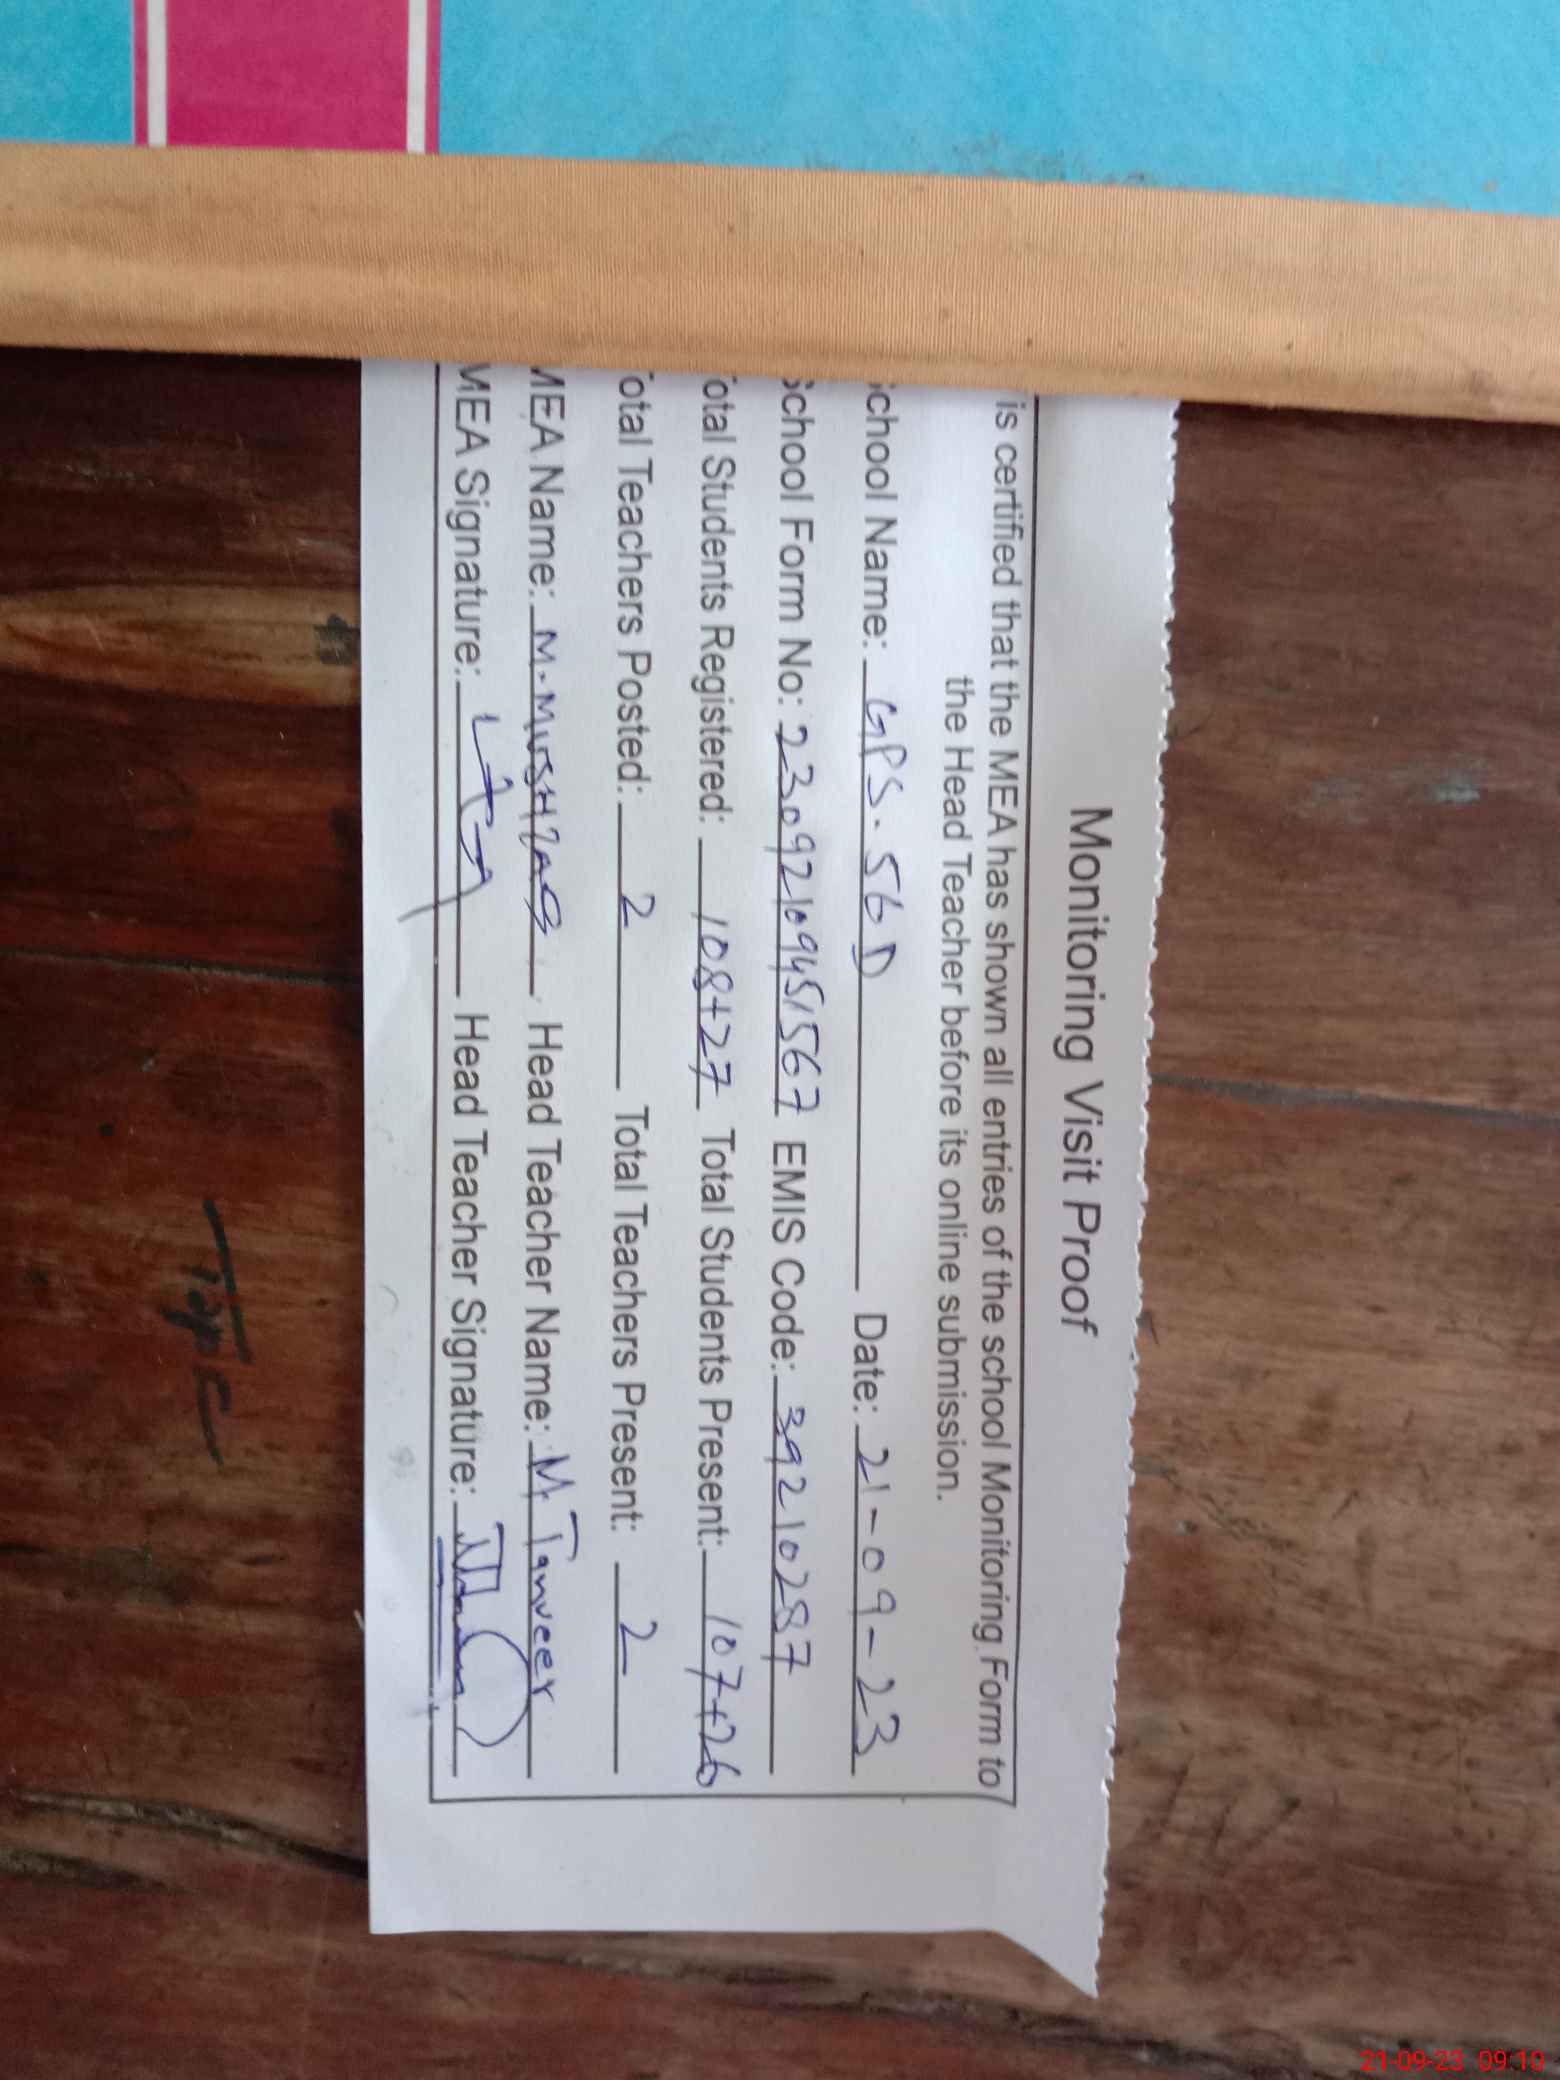 Monitoring Visit Proof
is certified that the MEA has shown all entries of the school Monitoring Form to
the Head Teacher before its online submission.
chool Name: GPS. 56 D Date: 21-09-23
School Form No: 23092109451567 EMIS Code: 39210287
otal Students Registered: 108+27 Total Students Present: 107+26
otal Teachers Posted: 2 Total Teachers Present: 2
MEA Name: M. MUSHTAQ Head Teacher Name: M. Tanveer
MEA Signature: Head Teacher Signature:
21-09-23 09:10